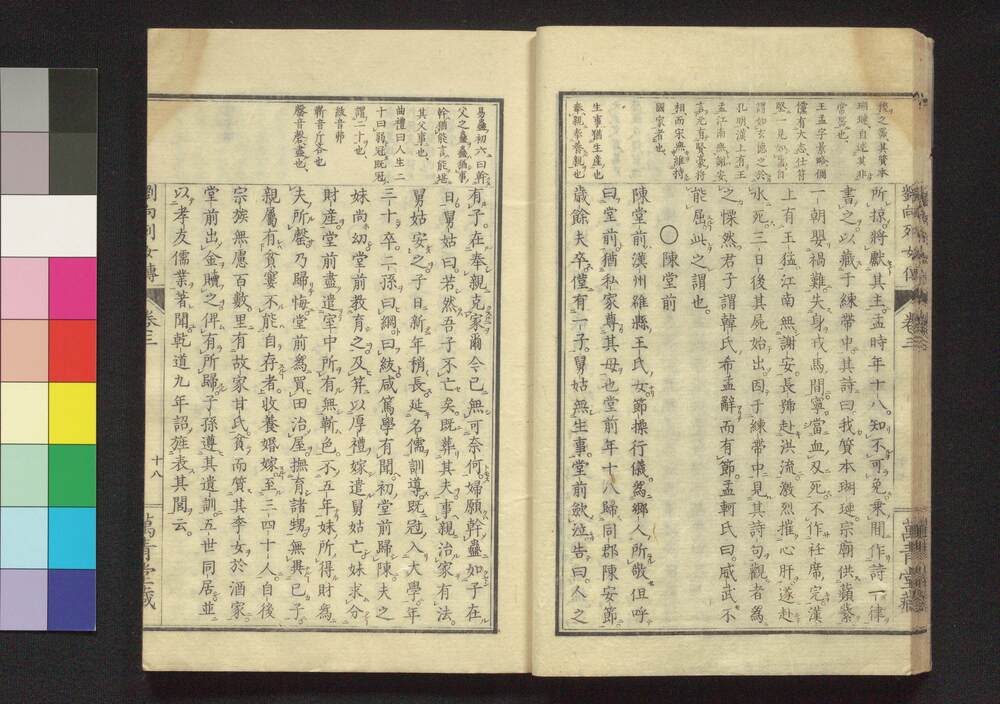 劉向列女傳
卷三
萬青堂藏
所掠將獻其主孟時年十八知不可免乘間作詩一律
書之以藏于練帶中其詩曰我質本瑚璉宗廟供蘋蘩
一朝嬰禍難失身戎馬間寧當血刃死不作衽席完漢
上有王猛江南無謝安長號赴洪流激烈摧心肝遂赴
水死三日後其屍始出因于練帶中見其詩句觀者爲
之慄然君子謂韓氏希孟辭而有節孟軻氏曰威武不
能屈此之謂也
○陳堂前
陳堂前漢州雒縣王氏女節操行儀爲鄉人所敬但呼
曰堂前猶私家尊其母也堂前年十八歸同郡陳安節
歲餘夫卒僅有一子舅姑無生事堂前歛泣告曰人之
王孟字景略倜
儻有大志仕苻
堅一見如舊自
謂如玄德之於
孔明漢上有王
孟江南無謝安
言元有賢豪將
相而宋無維持
國家者也
生事猶生産也
奉親奉養親也
有子在奉親克家爾今已無可奈何婦願幹蠱如子在
日舅姑曰若然吾子不亡矣既葬其夫事親治家有法
舅姑安之子日新年稍長延名儒訓導既冠入大學年
三十卒二孫曰綱曰紱咸篤學有聞初堂前歸陳夫之
妹尚幼堂前教育之及笄以厚禮嫁遣舅姑亡妹求分
財產堂前盡遣室中所有無靳色不五年妹所得財爲
夫所罄乃歸悔堂前爲買田治屋撫育諸甥無異己子
親屬有貧窶不能自存者收養婚嫁至三四十人自後
宗族無慮百數里有故家甘氏貧而質其季女於酒家
堂前出金贖之俾有所歸子孫遵其遺訓五世同居並
以孝友儒業著聞乾道九年詔旌表其閭云
易蠱初六曰幹
父之蠱蠱猶事
幹猶能言能堪
其父事也
曲禮曰人生二
十曰弱冠既冠
謂二十也
紱音弗
靳音斤吝也
罄音磬盡也
劉向列女傳
卷三
十八
萬青堂藏